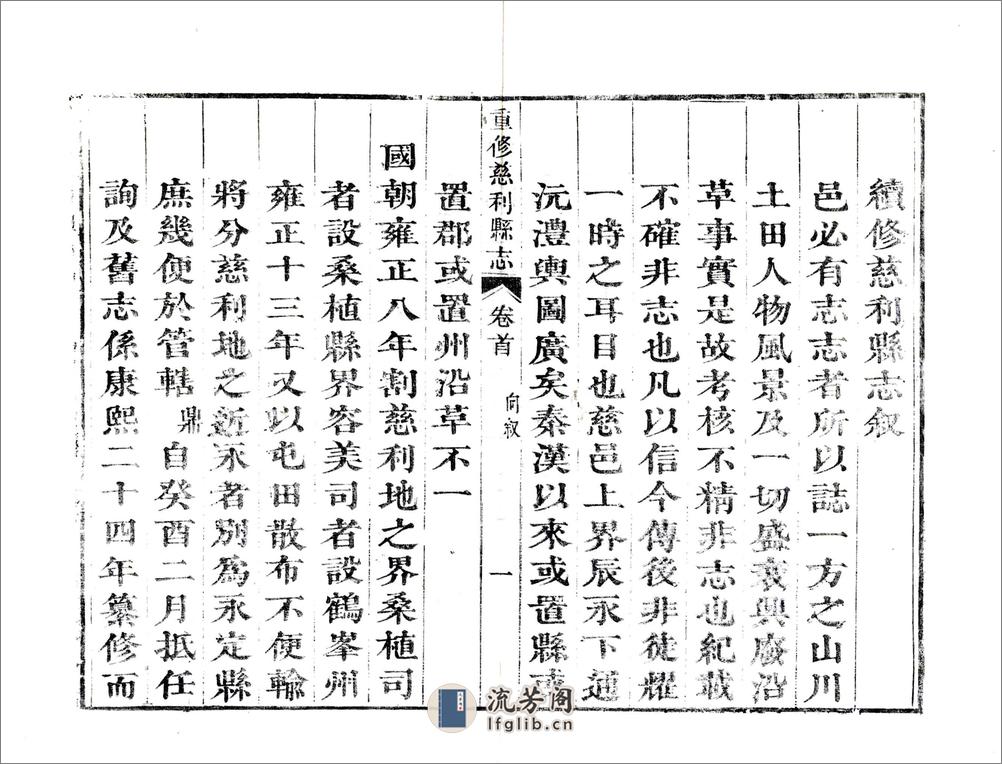 續修慈利縣志叙
邑必有志志者所以誌一方之山川
土田人物風景及一切盛衰興廢沿
草事實是故考核不精非志也紀載
不確非志也凡以信今傳後非徒耀
一時之耳目也慈邑上界辰永下通
沅澧輿圖廣矣秦漢以來或置縣或
置郡或置州沿草不一
國朝雍正八年割慈利地之界桑植司
者設桑植縣界容美司者設鶴峯州
雍正十三年又以屯田散布不便輸
將分慈利地之近永者別為永定縣
庶幾便於管轄鼎自癸酉二月抵任
詢及舊志係康熙二十四年纂修而
重修慈利縣志
卷首
向叙
一
流芳阁
lfglib.cn